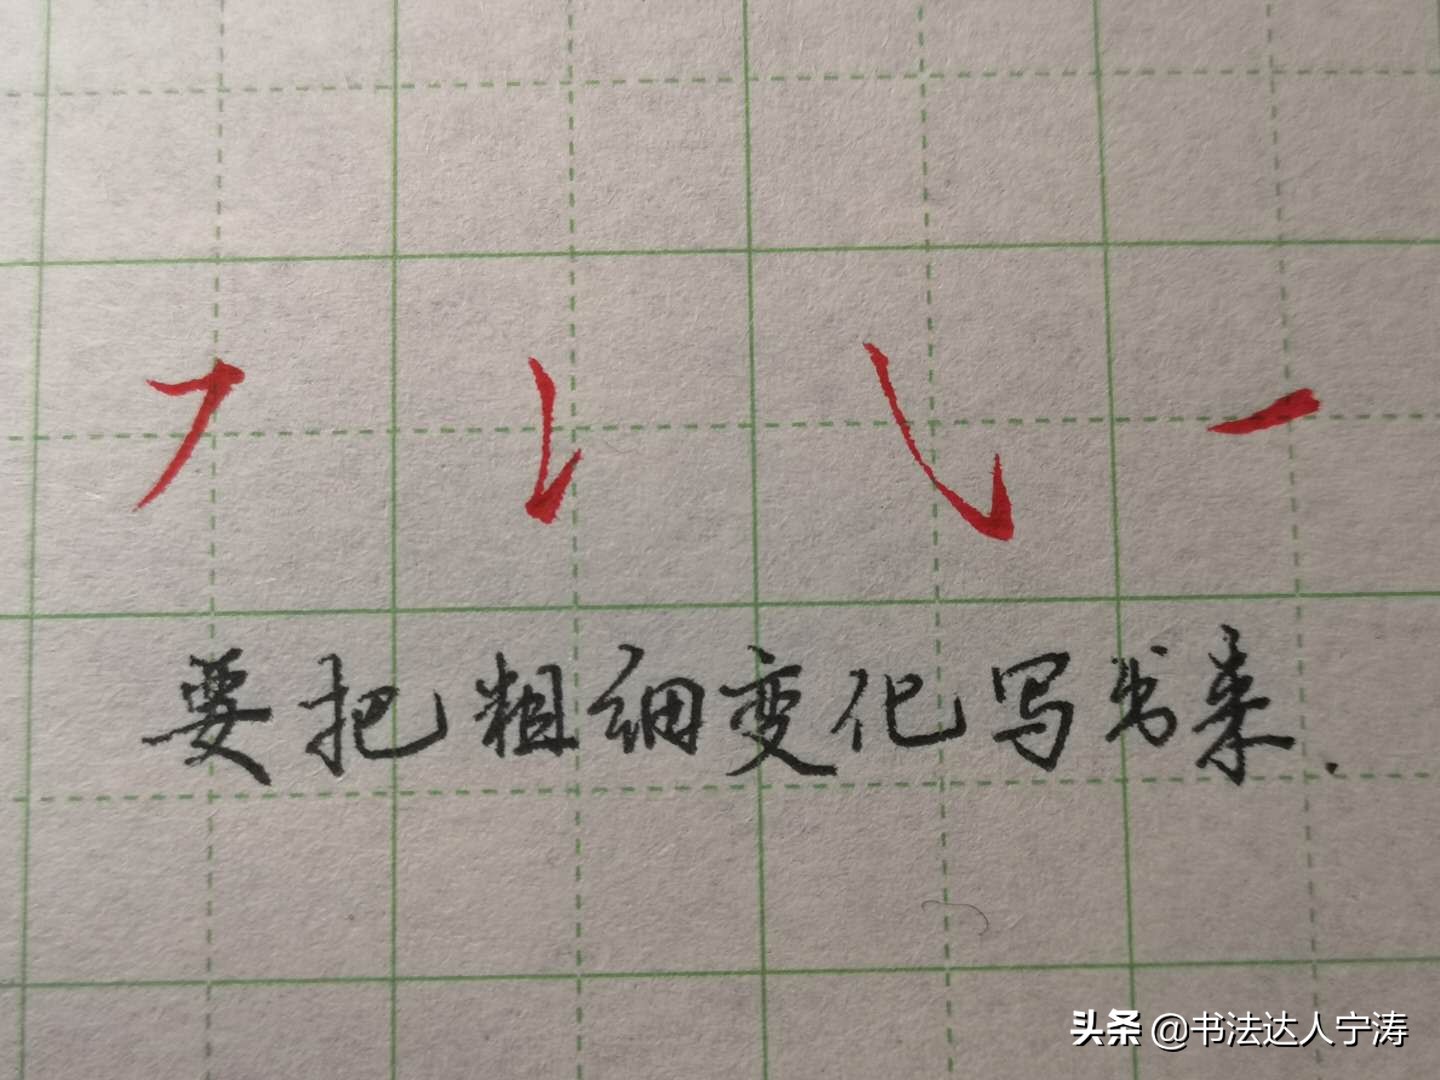 要把粗细变化写出来.
头条 @书法达人宁涛